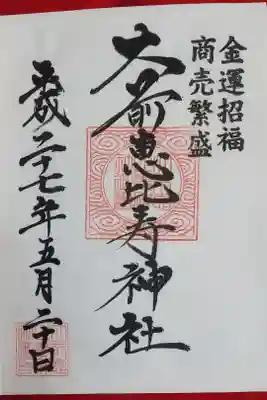 金運招福
商売繁盛
大前恵比寿神社
平成二十七年五月二十日